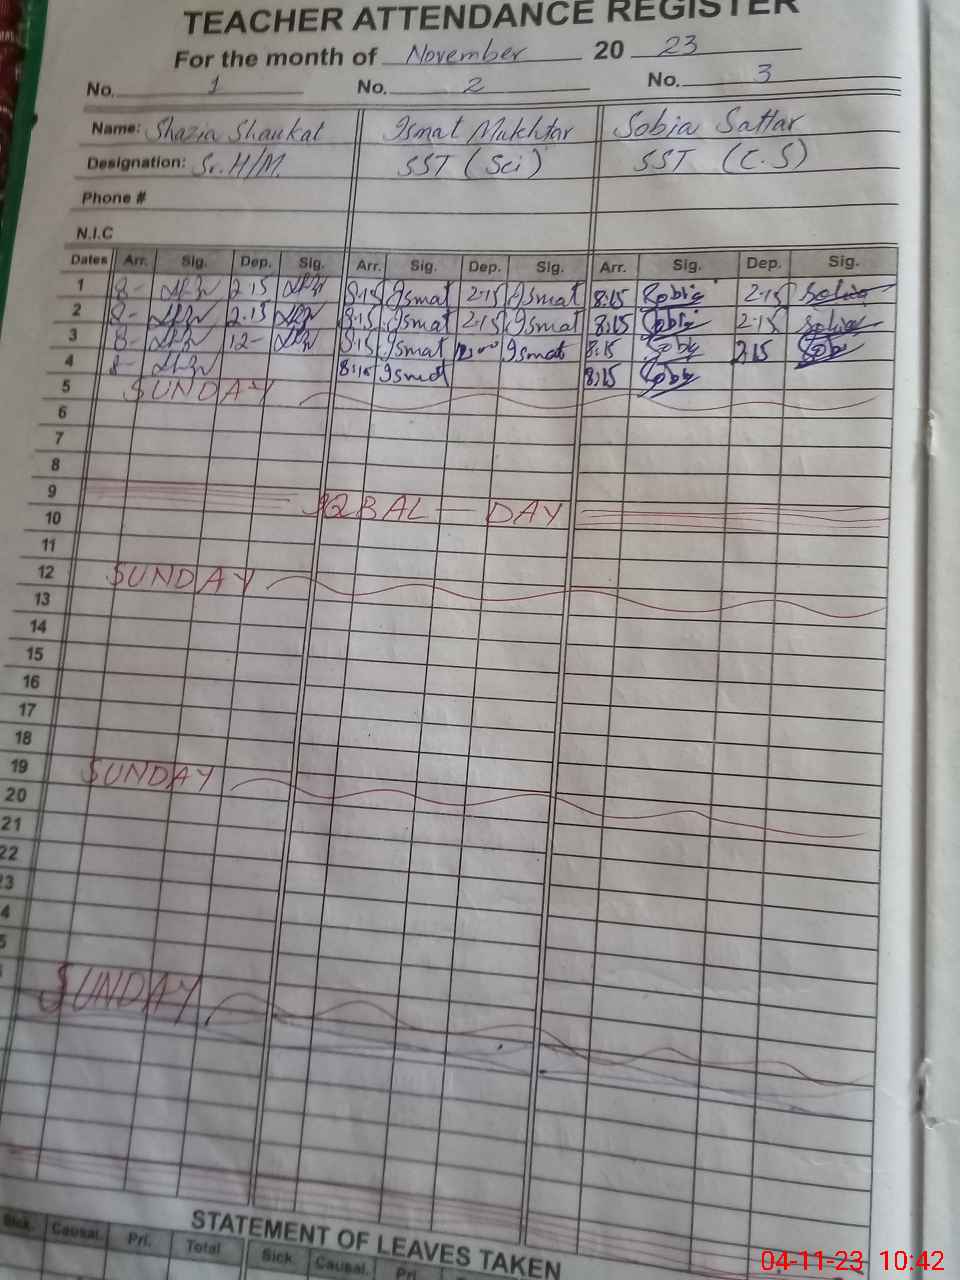 TEACHER ATTENDANCE REGISTER
For the month of November 2023
No. 1 No. 2 No. 3
Name: Shazia Shaukat Ismat Mukhtar Sobia Sattar
Designation: Sr. H/M. SST (Sci) SST (C.S)
Phone #
N.I.C
Dates Arr. Sig. Dep. Sig. Arr. Sig. Dep. Sig. Arr. Sig. Dep. Sig.
1 8- 2.15 8.15 Ismat 2.15 Ismat 8:15 Sobia 2.15 Sobia
2 8- 2.15 8.15 Ismat 2.15 Ismat 8:15 Sobia 2.15 Sobia
3 8- 12- 8.15 Ismat Ismat 8:15 Sobia
4 8- 8:15 Ismat 8:15 Sobia
5 SUNDAY
6
7
8
9 IQBAL DAY
10
11
12 SUNDAY
13
14
15
16
17
18
19 SUNDAY
20
21
22
23
4
5
SUNDAY
STATEMENT OF LEAVES TAKEN
Sick. Causal. Pri. Total Sick. Causal. Pri.
04-11-23 10:42